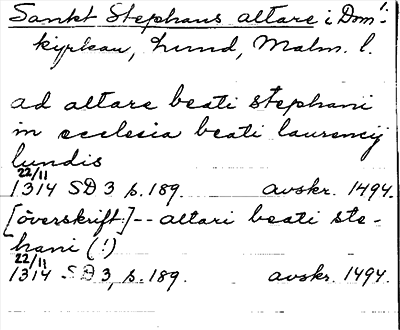 Sankt Stephans altare i Dom-
kyrkan, Lund, Malm. l.
ad altare beati stephani
in ecclesia beati laurencij
lundis
22/11
1314 SD 3 s. 189. avskr. 1494.
[överskrift:]-- altari beati ste-
hani (!)
22/11
1314 SD 3, s. 189. avskr. 1494.